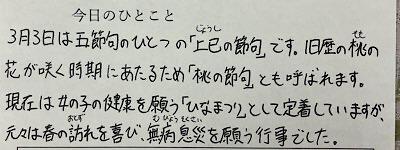 今日のひとこと
3月3日は五節句のひとつの「上巳の節句」です。旧歴の桃の
花が咲く時期にあたるため「桃の節句」とも呼ばれます。
現在は女の子の健康を願う「ひなまつり」として定着していますが、
元々は春の訪れを喜び、無病息災を願う行事でした。